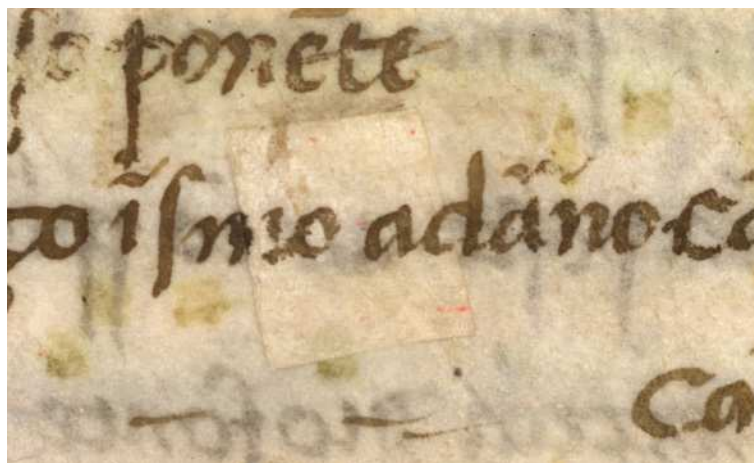 so ponēte
go īsmo adāno ca
ca